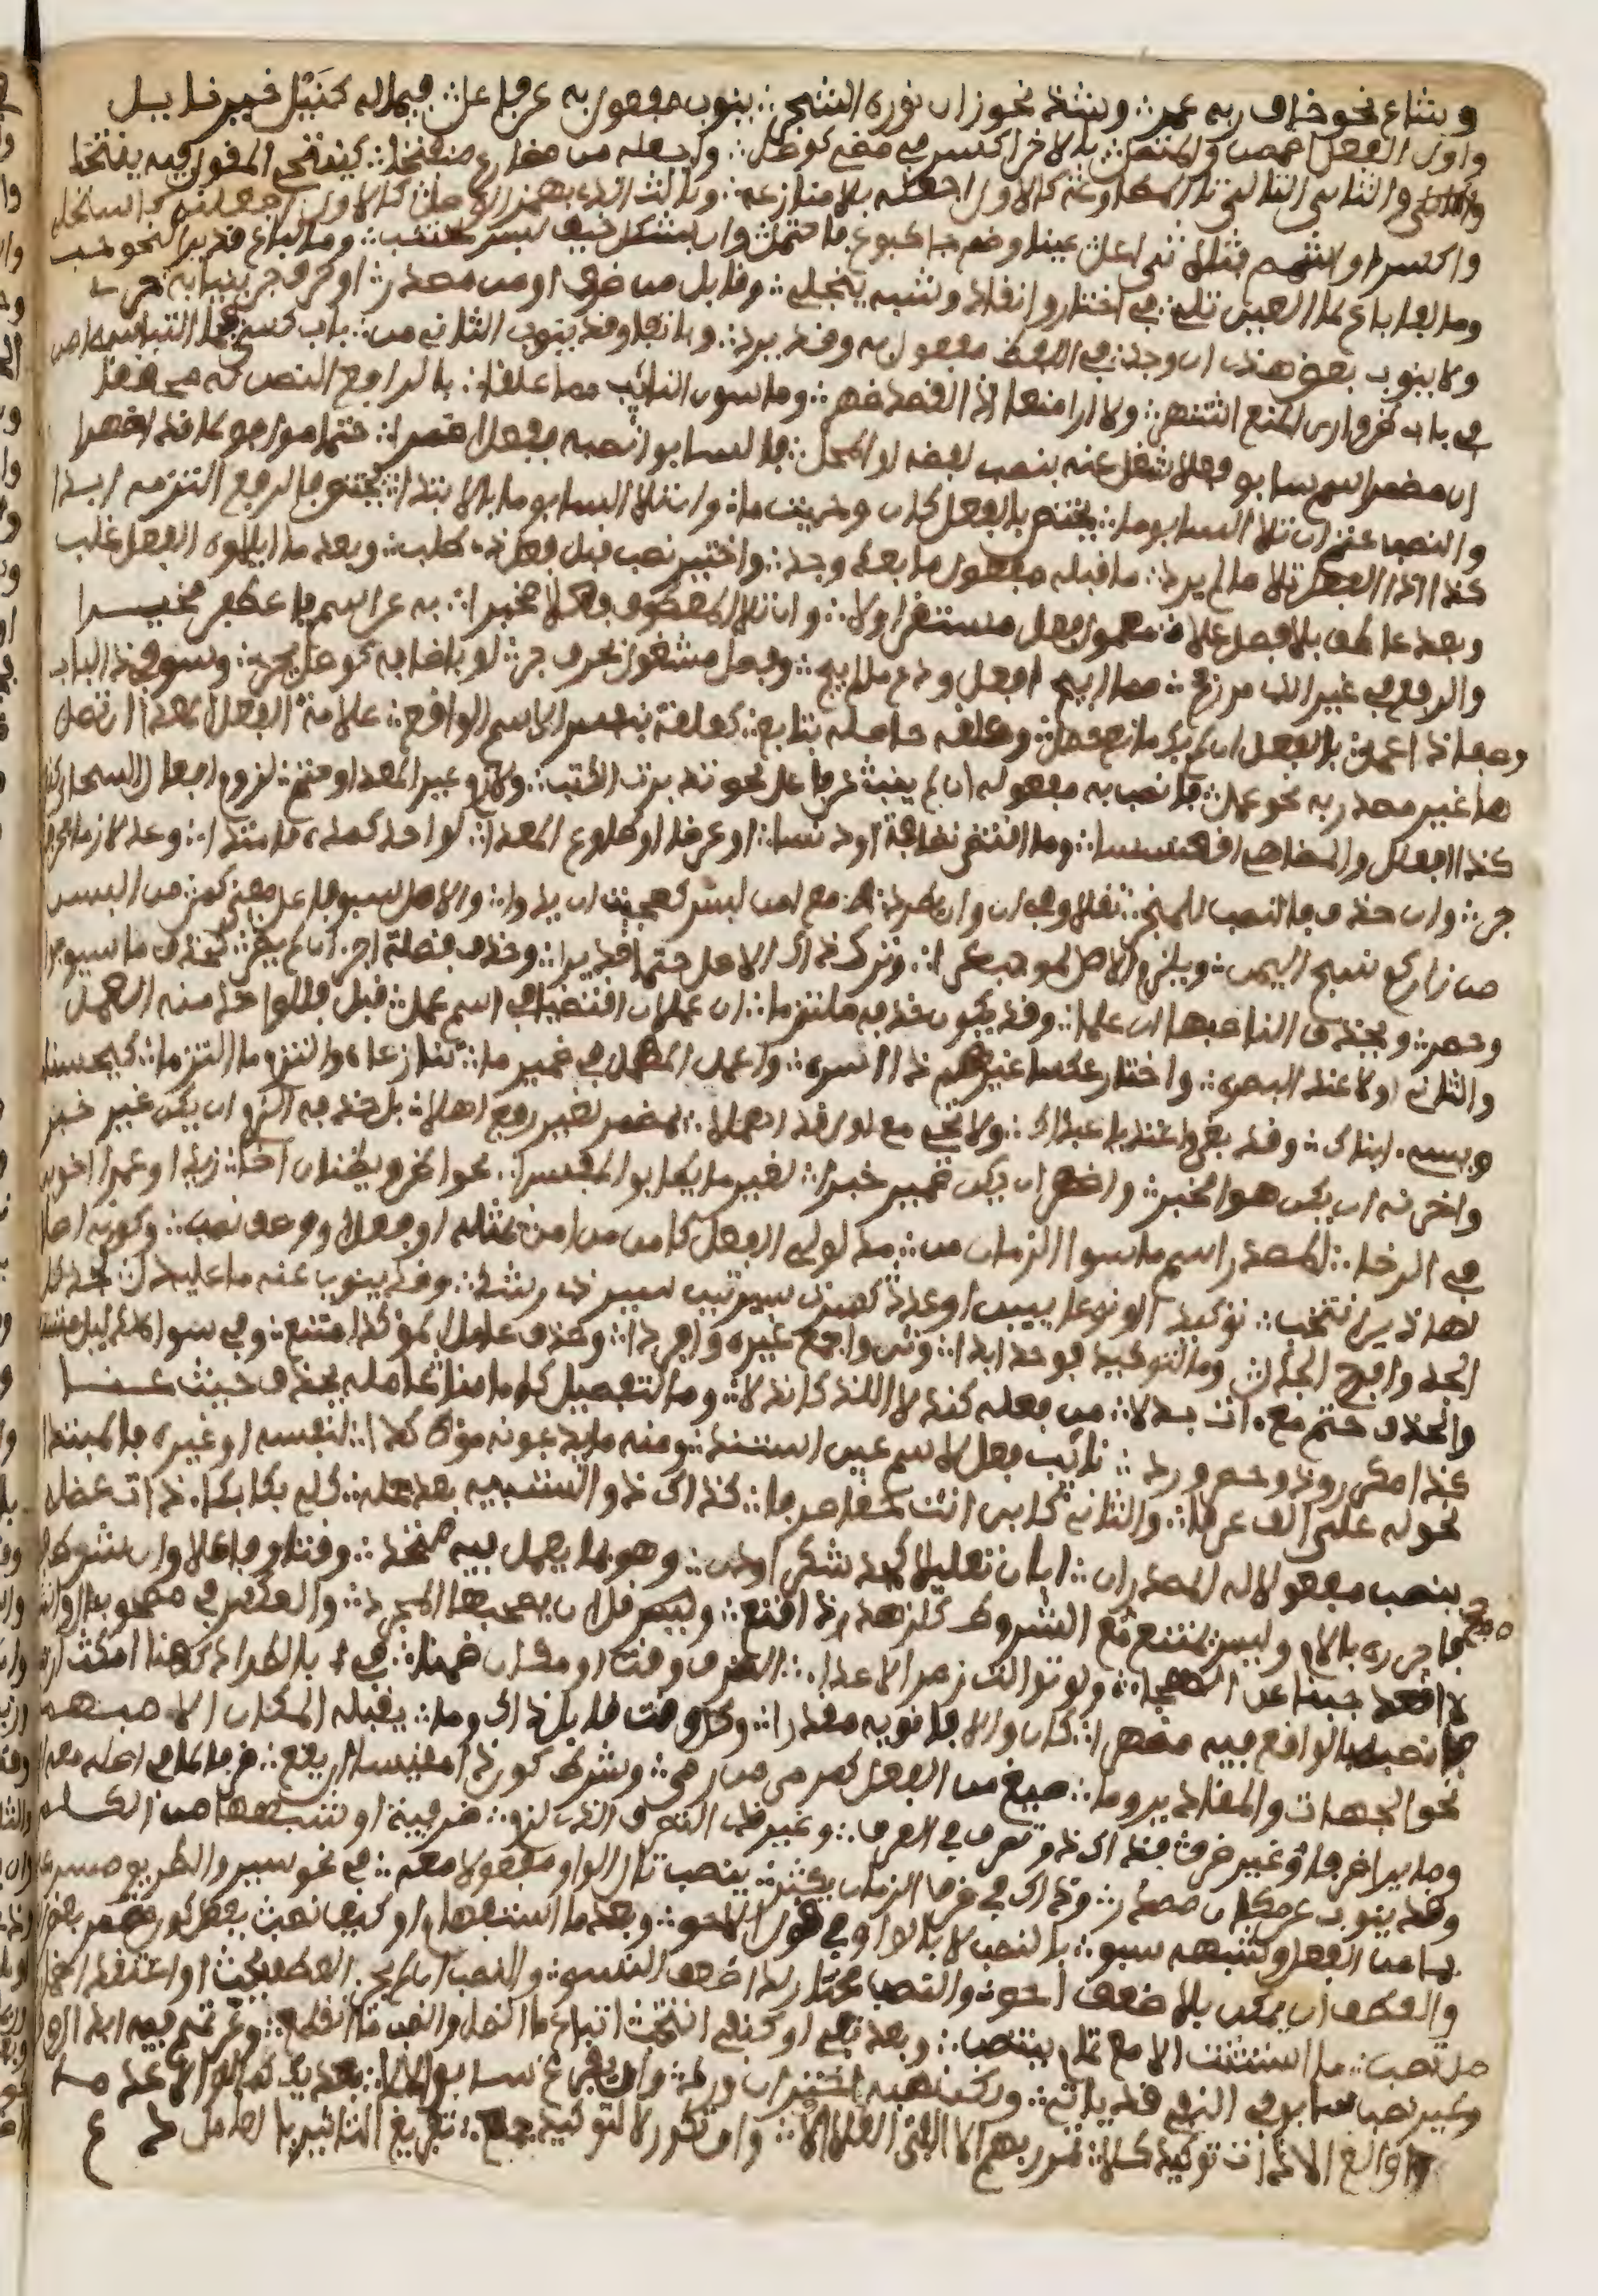 وشاع نحو خاف ربه عمر ∴ وشذ نحو زان نوره الشجر ∴ ينوب مفعول به عن فاعل ∴ فيما له كنيل خير نايل
واول الفعل اضممن والمتصل ∴ بالاخر اكسر في مضي كوصل ∴ واجعله من مضارع منفتحا ∴ كينتحي المقول فيه ينتحا
والثاني التالي تا المطاوعه كالاول اجعله بلا منازعه ∴ وثالث الذي بهمز الوصل كالاول اجعلنه كاستحلي
واكسر او اشمم فا ثلاثي اعل عينا وضم جا كبوع فاحتمل وان بشكل خيف لبس يجتنب ∴ وما لباع قد يرا لنحو حب
وما لفا باع لما العين تلي ∴ في اختار وانقاد وشبه ينجلي ∴ وقابل من ظرف او من مصدر ∴ او حرف جر بنيابة حر
ولا ينوب بعض هذي ان وجد ∴ في اللفظ مفعول به وقد يرد ∴ وباتفاق قد ينوب الثان من ∴ باب كسا فيما التباسه امن
في باب ظن وارى المنع اشتهر ∴ ولا ارا منعا اذا القصد ظهر ∴ وما سوى النائب مما علقا ∴ بالرافع النصب له محققا
ان مضمر اسم سابق فعلا شغل عنه بنصب لفظه او المحل ∴ فالسابق انصبه بفعل اضمرا ∴ حتما موافق لما قد اظهرا
والنصب حتم ان تلا السابق ما ∴ يختص بالفعل كان وحيثما ∴ وان تلا السابق ما بالابتدا ∴ يختص فالرفع التزمه ابدا
كذا اذا الفعل تلا ما لم يرد ∴ ما قبله معمول ما بعد وجد ∴ واختير نصب قبل فعل ذي طلب ∴ وبعد ما ايلاؤه الفعل غلب
وبعد عاطف بلا فصل على معمول فعل مستقر اولا ∴ وان تلا المعطوف فعلا مخبرا ∴ به عن اسم فاعطفن مخيرا
والرفع في غير الذي مر رجح ∴ فما ابيح افعل ودع ما لم يبح ∴ وفصل مشغول بحرف جر ∴ او باضافة كوصل يجر ∴ وسو في ذا الباب
وصفا ذا عمل ∴ بالفعل ان لم يك مانع حصل ∴ وعلقة حاصلة بتابع ∴ كعلقة بنفس الاسم الواقع ∴ علامة الفعل المعدا ان تصل
ها غير مصدر به نحو عمل ∴ فانصب به مفعوله ان لم ينب ∴ عن فاعل نحو تدبرت الكتب ∴ ولازم غير المعدا وحتم ∴ لزوم افعال السجايا كنهم
كذا افعلل والمضاهي اقعنسسا ∴ وما اقتضى نظافة او دنسا ∴ او عرضا او طاوع المعدا ∴ لواحد كمده فامتدا ∴ وعد لازما بحرف
جر ∴ وان حذف فالنصب للمنجر ∴ نقلا وفي ان وان يطرد ∴ مع امن لبس كعجبت ان يدوا ∴ والاصل سبق فاعل معنى كمن ∴ من البسن
من زاركم نسج اليمن ∴ ويلزم الاصل لموجب عرا ∴ وترك ذاك الاصل حتما قد يرا ∴ وحذف فضلة اجز ان لم يضر ∴ كحذف ما سيق جوابا
وحصر ∴ ويحذف الناصبها ان علما ∴ وقد يكون حذفه ملتزما ∴ ان عاملان اقتضيا في اسم عمل ∴ قبل فللواحد منه العمل
والثان اولا عند البصره ∴ واختار عكسا غيرهم ذا اسره ∴ واعمل المهمل في ضمير ما ∴ تنازعاه والتزم ما التزما ∴ كيحسنان
ويسيء ابناك ∴ وقد بغى واعتديا عبداك ∴ ولا تجي مع اول قد اهملا ∴ بمضمر لغير رفع اوهلا ∴ بل حذفه الزم ان يكن غير خبر
واخرنه ان يكن هو الخبر ∴ واظهر ان يكن ضمير خبرا ∴ لغير ما يطابق المفسرا ∴ نحو اظن ويظنان اخا ∴ زيدا وعمرا اخوين
في الرخا ∴ المصدر اسم ما سوا الزمان من ∴ مدلولي الفعل كامن من امن ∴ بمثله او فعل او وصف نصب ∴ وكونه اصلا
لهاذين انتخب ∴ توكيدا او نوعا يبين او عدد كسرت سيرتين سير ذي رشد ∴ وقد ينوب عنه ما عليه دل ∴ كجد كل
الجد وافرح الجذل ∴ وما لتوكيد فوحد ابدا ∴ وثن واجمع غيره وافردا ∴ وحذف عامل المؤكد امتنع ∴ وفي سواه لدليل متسع
والحذف حتم مع ات بدلا ∴ من فعله كندلا اللذ كاندلا ∴ وما لتفصيل كاما منا ∴ عامله يحذف حيث عنا
كذا مكرر وذو حصر ورد ∴ نائب فعل لاسم عين استند ∴ ومنه ما يدعونه مؤكدا ∴ لنفسه او غيره فالمبتدا
نحو له علي الف عرفا ∴ والثان كابني انت حقا صرفا ∴ كذاك ذو التشبيه بعد جمله ∴ كلي بكا بكاء ذات عضله
ينصب مفعولا له المصدر ان ∴ ابان تعليلا كجد شكرا ودن ∴ وهو بما يعمل فيه متحد ∴ وقتا وفاعلا وان شرط
فاجرره باللام وليس يمتنع مع الشروط كلزهد ذا قنع ∴ وقل ان يصحبها المجرد ∴ والعكس في مصحوب ال وانشدوا
لا اقعد الجبن عن الهيجاء ∴ ولو توالت زمر الاعداء ∴ الظرف وقت او مكان ضمنا ∴ في باطراد كهنا امكث ازمنا
فانصبه بالواقع فيه مظهرا ∴ كان والا فانوه مقدرا ∴ وكل وقت قابل ذاك وما ∴ يقبله المكان الا مبهما
نحو الجهات والمقادير وما ∴ صيغ من الفعل كمرمى من رمى ∴ وشرط كون ذا مقيسا ان يقع ∴ ظرفا لما في اصله معه
وما يرا ظرفا وغير ظرف ∴ فذاك ذو تصرف في العرف ∴ وغير ذي التصرف الذي لزم ∴ ظرفية او شبهها من الكلم
وقد ينوب عن مكان مصدر ∴ وذاك في ظرف الزمان يكثر ∴ ينصب تالي الواو مفعولا معه ∴ في نحو سيري والطريق مسرعه
بما من الفعل وشبهه سبق ∴ ذا النصب لا بالواو في القول الاحق ∴ وبعد ما استفهام او كيف نصب بفعل كون مضمر بعض
والعطف ان يمكن بلا ضعف احق ∴ والنصب مختار لدا ضعف النسق ∴ والنصب ان لم يجز العطف يجب او اعتقد اضمار
عامل تصب ∴ ما استثنت الا مع تمام ينتصب ∴ وبعد نفي او كنفي انتخب اتباع ما اتصل وانصب ما انقطع ∴ وعن تميم فيه ابدال
وغير نصب سابق في النفي قد ياتي ∴ ولكن نصبه اختر ان ورد ∴ وان يفرغ سابق الا لما ∴ بعد يكن كما لو الا عدما
والغ الا ذات توكيد كلا ∴ تمرر بهم الا الفتى الا العلا ∴ وان تكرر لا لتوكيد فمع ∴ تفريغ التاثير بالعامل دع